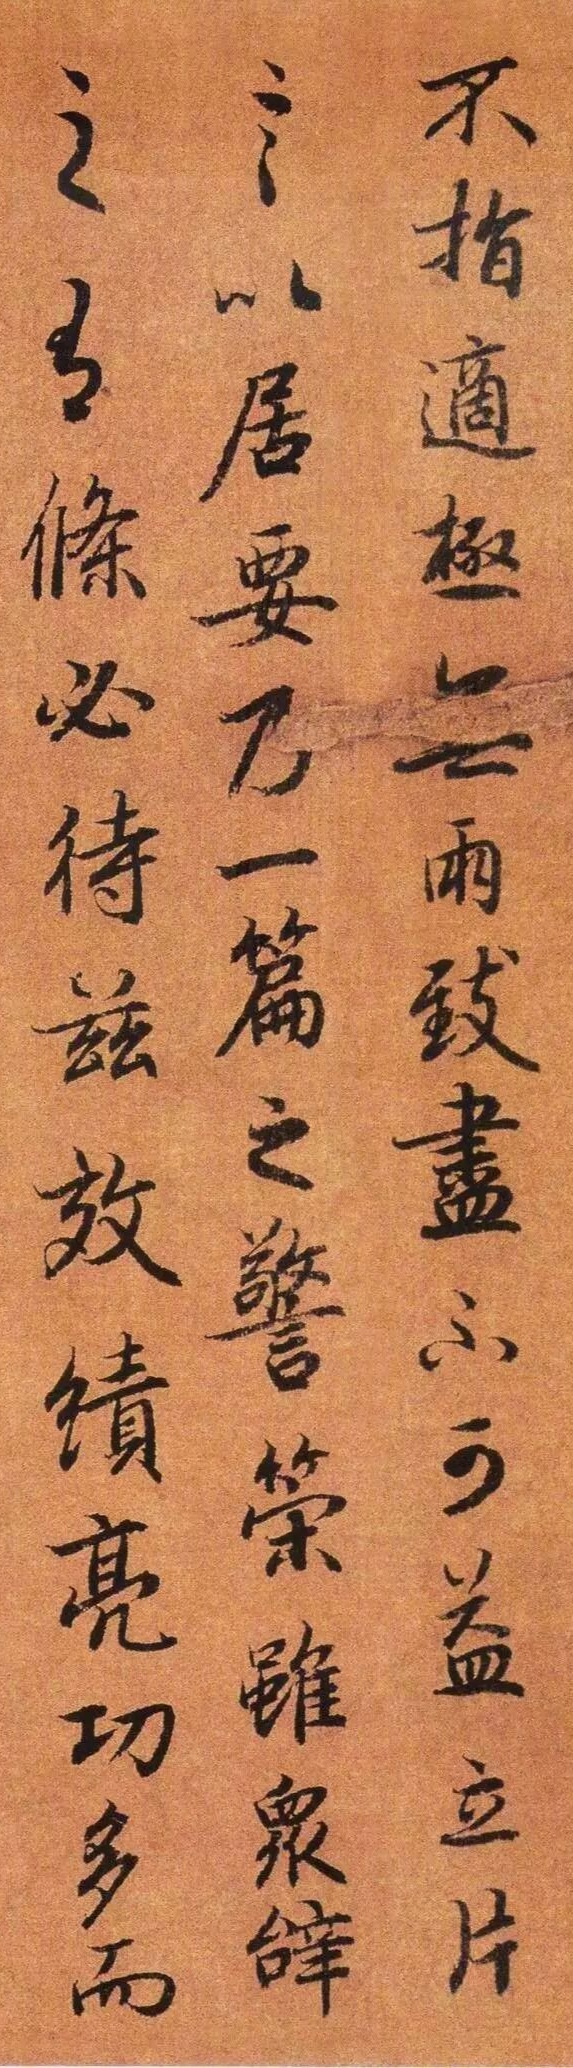 不指適極無兩致盡不可益立片
言以居要乃一篇之警策雖衆辭
之有條必待茲效績亮功多而